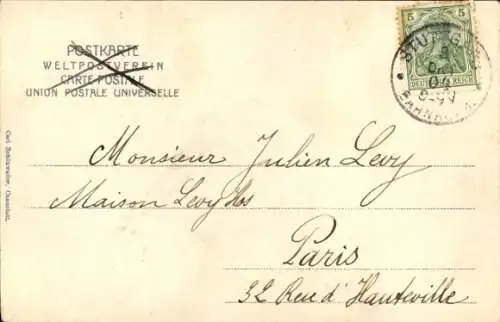 POSTKARTE
WELTPOSTVEREIN
CARTE POSTALE
UNION POSTALE UNIVERSELLE
5 5
DEUTSCHES REICH
STUTTG
04
8-9 N
BAHNHOF
Monsieur Julien Levy
Maison Levy fils
Paris
32 Rue d'Hauteville